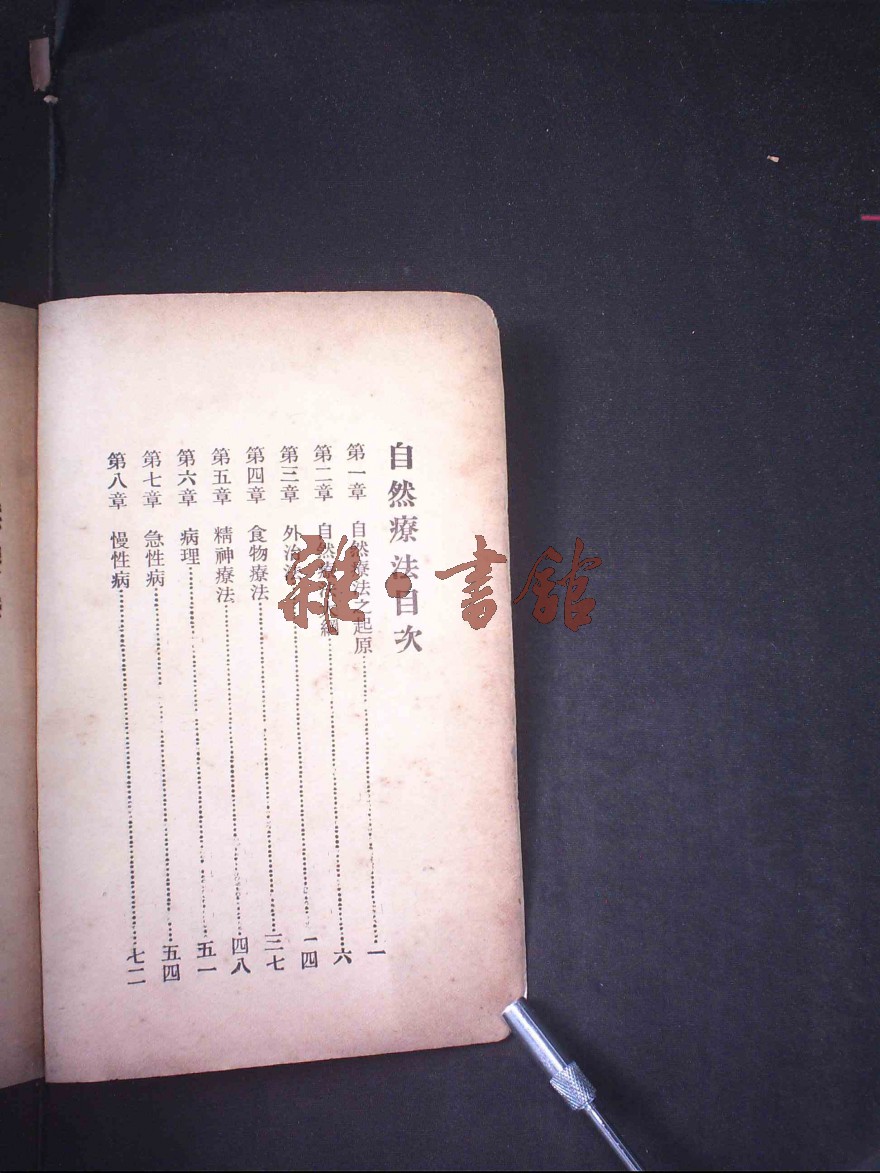 自然療法目次
第一章 自然療法之起原…………一
第二章 自然療法大綱…………六
第三章 外治法…………一四
第四章 食物療法…………三七
第五章 精神療法…………四八
第六章 病理…………五一
第七章 急性病…………五四
第八章 慢性病…………七二
雜·書館